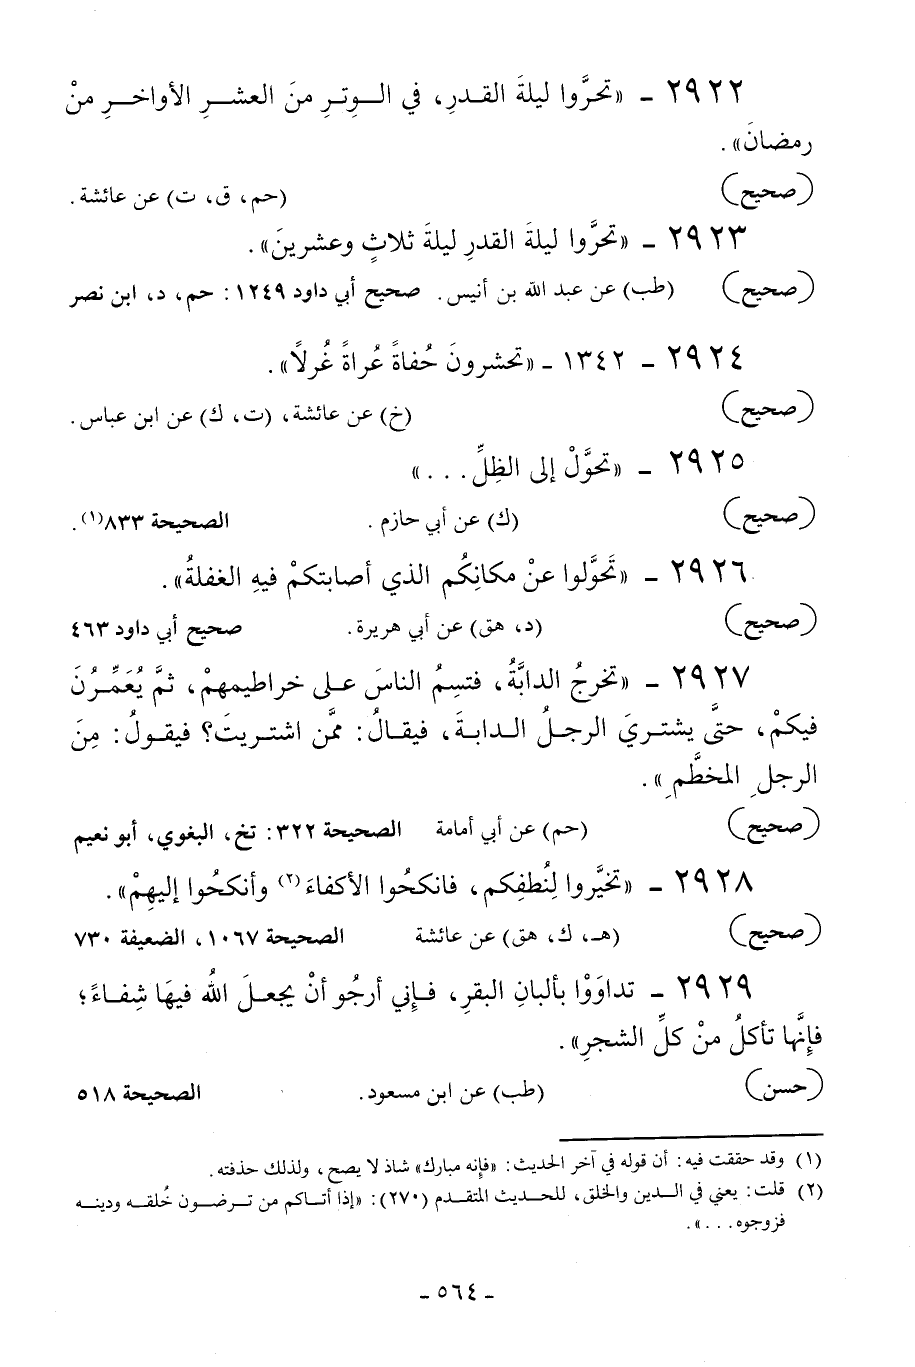 ٢٩٢٢ - «تحرَّوا ليلةَ القدرِ، في الوِترِ منَ العشرِ الأواخرِ منْ
رمضانَ».
(صحيح) (حم، ق، ت) عن عائشة.
٢٩٢٣ - «تحرَّوا ليلةَ القدرِ ليلةَ ثلاثٍ وعشرينَ».
(صحيح) (طب) عن عبد الله بن أنيس. صحيح أبي داود ١٢٤٩: حم، د، ابن نصر
٢٩٢٤ - ١٣٤٢ - «تحشرونَ حُفاةً عُراةً غُرلًا».
(صحيح) (خ) عن عائشة، (ت، ك) عن ابن عباس.
٢٩٢٥ - «تحوَّلْ إلى الظِلِّ...»
(صحيح) (ك) عن أبي حازم. الصحيحة ٨٣٣(١).
٢٩٢٦ - «تَحَوَّلوا عنْ مكانِكُم الذي أصابتكمْ فيهِ الغفلةُ».
(صحيح) (د، هق) عن أبي هريرة. صحيح أبي داود ٤٦٣
٢٩٢٧ - «تخرجُ الدابَّةُ، فتسِمُ الناسَ على خراطيمهمْ، ثمَّ يُعَمَّرُنَ
فيكمْ، حتَّى يشتريَ الرجلُ الدابةَ، فيقالُ: ممَّن اشتريتَ؟ فيقولُ: مِنَ
الرجلِ المخطَّمِ».
(صحيح) (حم) عن أبي أمامة الصحيحة ٣٢٢: تخ، البغوي، أبو نعيم
٢٩٢٨ - «تخيَّروا لِنُطفِكم، فانكحُوا الأكفاءَ(٢) وأنكحُوا إليهِمْ».
(صحيح) (هـ، ك، هق) عن عائشة الصحيحة ١٠٦٧، الضعيفة ٧٣٠
٢٩٢٩ - تداوَوْا بألبانِ البقرِ، فإني أرجُو أنْ يجعلَ اللهُ فيهَا شِفاءً؛
فإنَّها تأكلُ منْ كلِّ الشجرِ».
(حسن) (طب) عن ابن مسعود. الصحيحة ٥١٨
(١) وقد حققت فيه: أن قوله في آخر الحديث: «فإنه مبارك» شاذ لا يصح، ولذلك حذفته.
(٢) قلت: يعني في الدين والخلق، للحديث المتقدم (٢٧٠): «إذا أتاكم من ترضون خُلقه ودينه
فزوجوه...».
- ٥٦٤ -